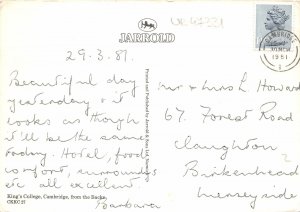 UK47331
JARROLD
CAMBRIDGE
1981
29.3.81.
Beautiful day
yesterday & it
looks as though
it'll be the same
today. Hotel, food
comfort, surrounds
etc all excellent.
Barbara
King's College, Cambridge, from the Backs.
CKEC 27
Printed and Published by Jarrold & Sons Ltd,
Mr & Mrs L. Howard
67 Forest Road
Claughton
Birkenhead
Merseyside